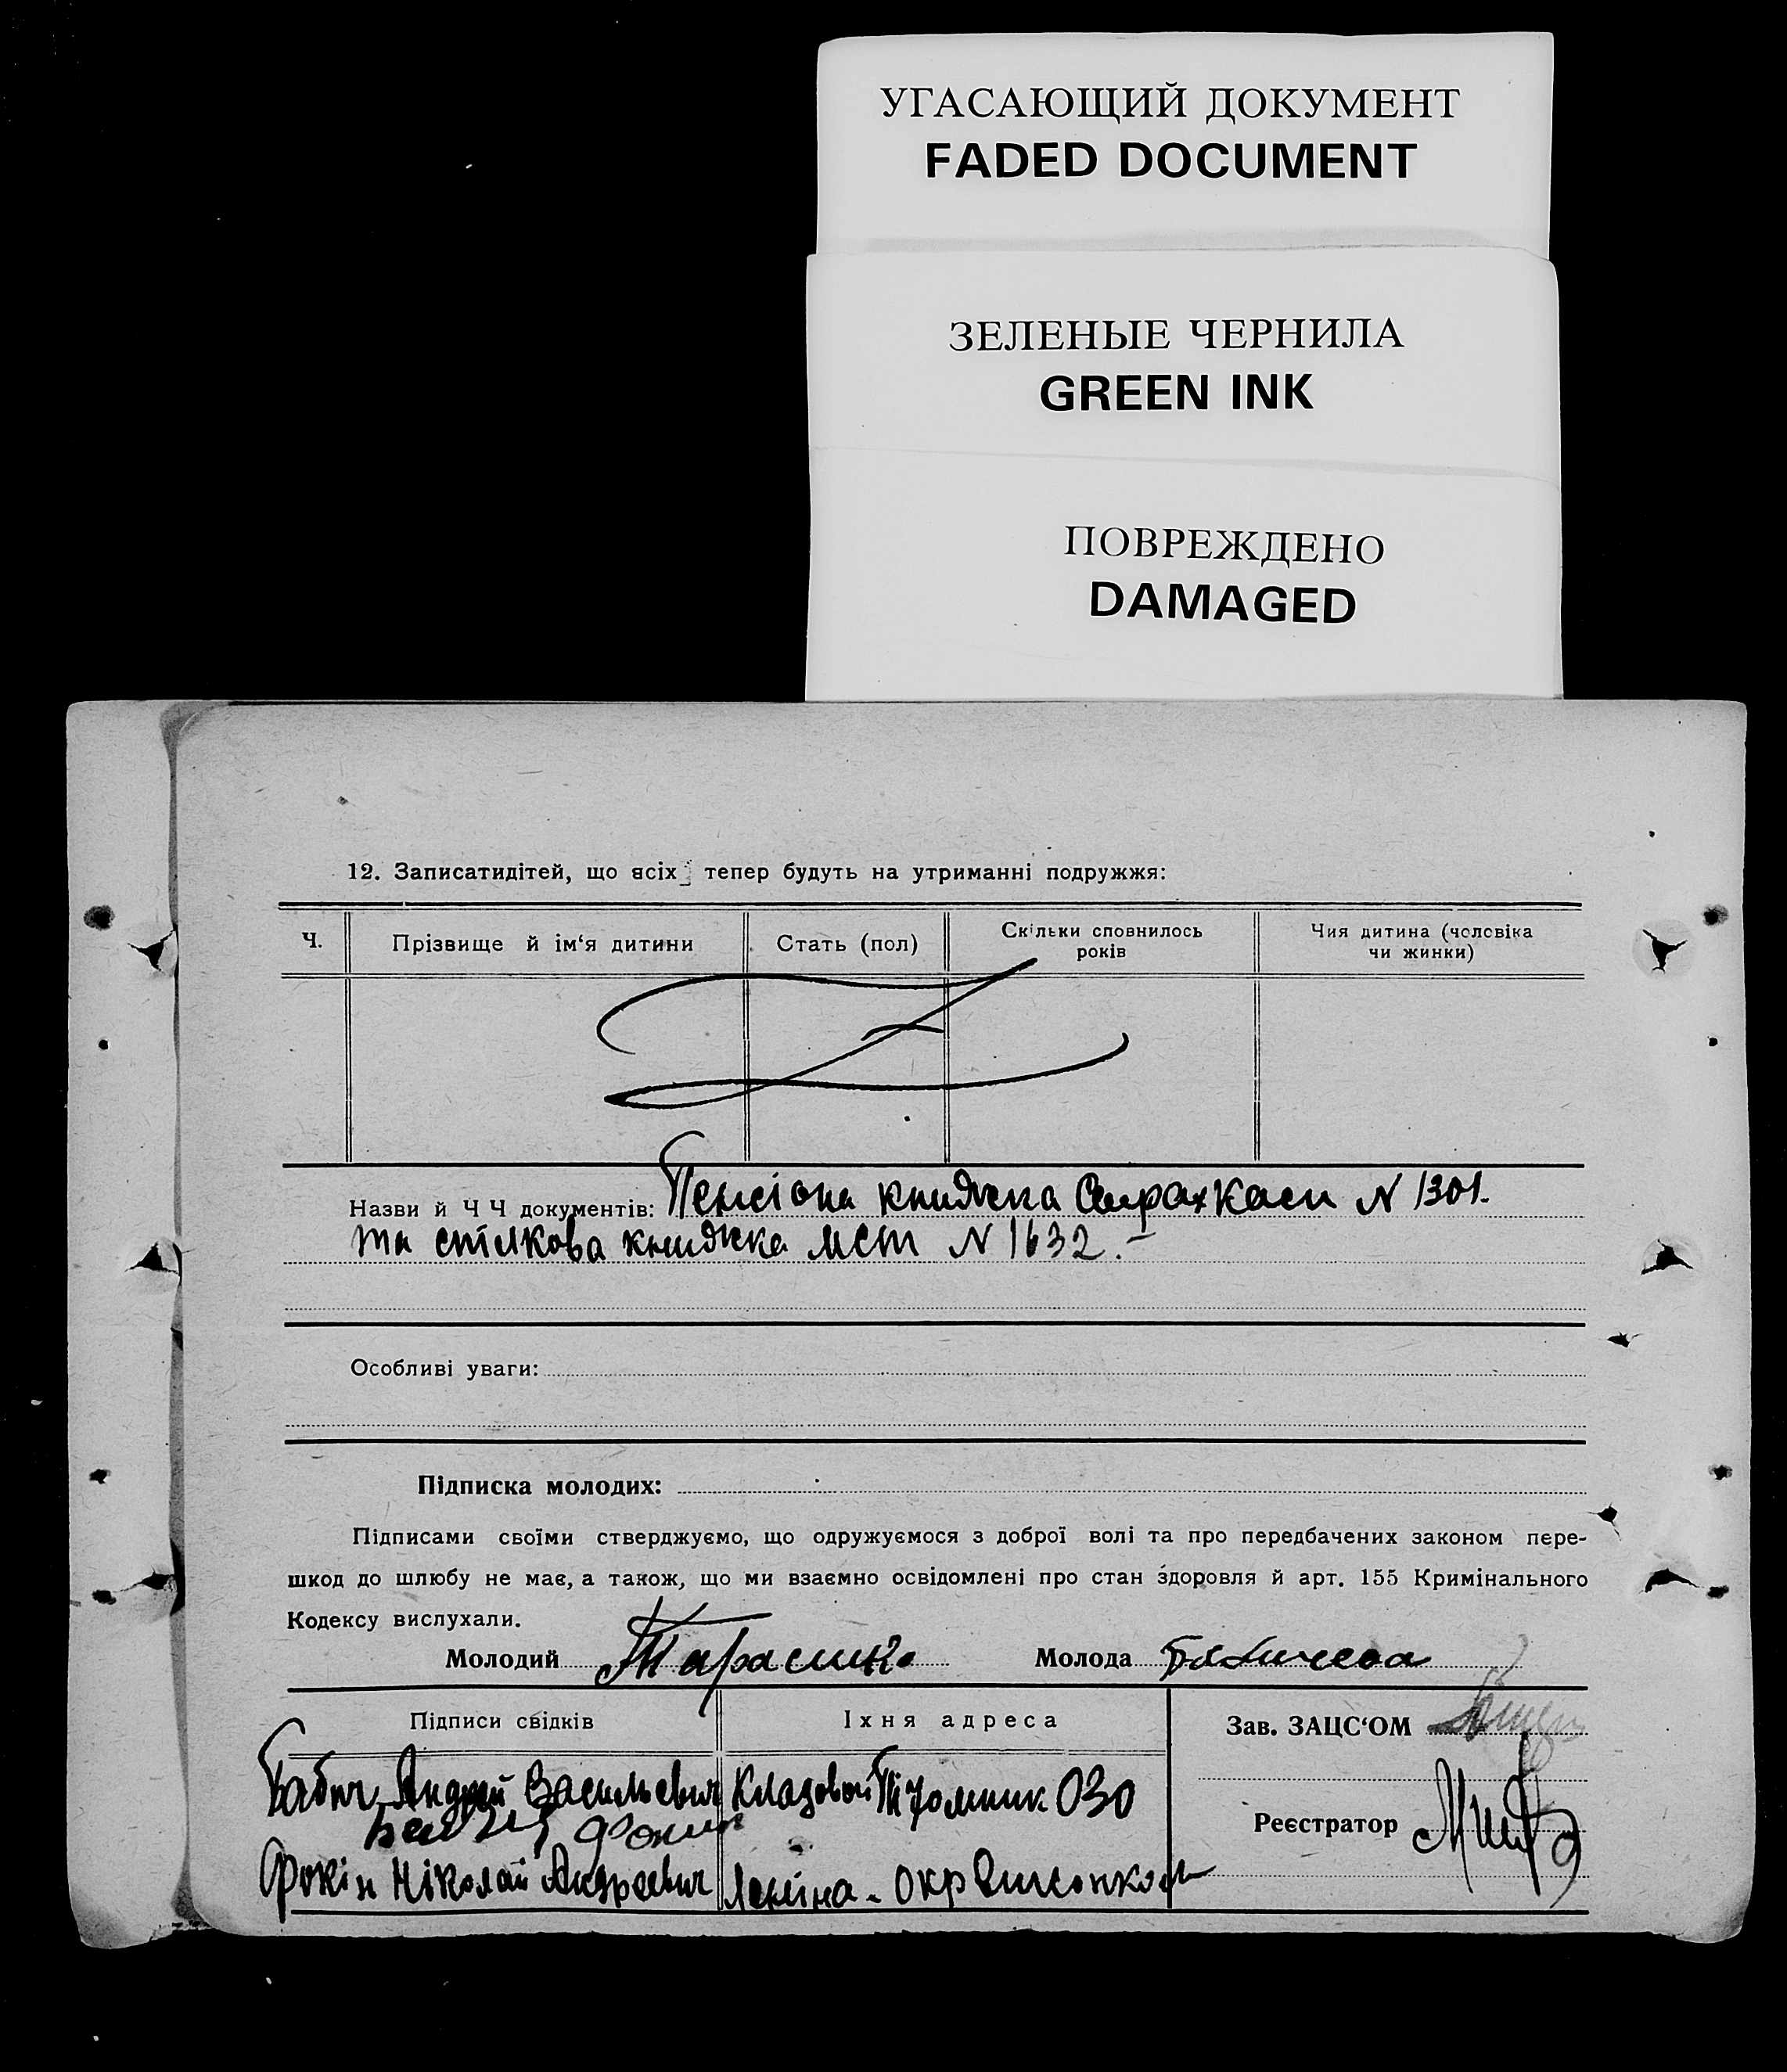 УГАСАЮЩИЙ ДОКУМЕНТ
FADED DOCUMENT
ЗЕЛЕНЫЕ ЧЕРНИЛА
GREEN INK
ПОВРЕЖДЕНО
DAMAGED
12. Записатидітей, що всіх тепер будуть на утриманні подружжя:
Ч. Прізвище й ім‘я дитини Стать (пол) Скільки сповнилось років Чия дитина (чоловіка чи жинки)
Назви й Ч Ч документів: Пенсіона книжка Страхкаси N 1301.
та спілкова книжка мст N 1632.–
Особливі уваги:
Підписка молодих:
Підписами своїми стверджуємо, що одружуємося з доброї волі та про передбачених законом пере-
шкод до шлюбу не має, а також, що ми взаємно освідомлені про стан здоровля й арт. 155 Кримінального
Кодексу вислухали.
Молодий Молода
Підписи свідків Їхня адреса Зав. ЗАЦС‘ОМ
Бабич Андрей Васильевич ОЗО
Реєстратор
Фокін Ніколай Андреевич Леніна - Окр